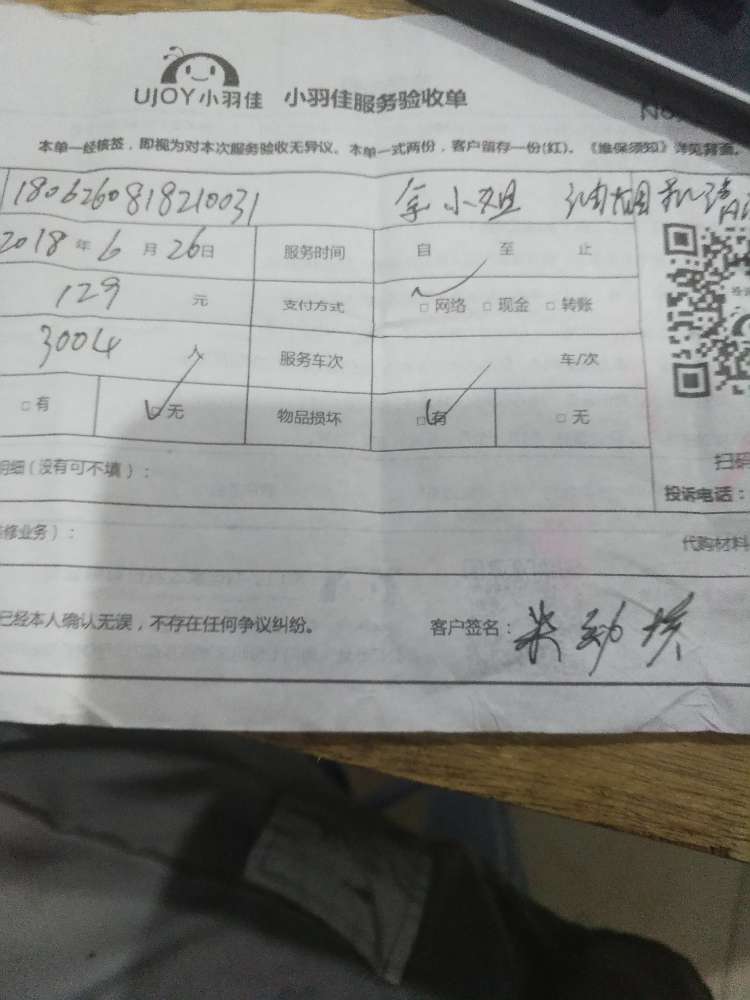 UJOY小羽佳 小羽佳服务验收单
No.
本单一经核签，即视为对本次服务验收无异议。本单一式两份，客户留存一份(红)。《维保须知》详见背面。
1806260818210031 小姐 油烟机清
2018年6月26日 服务时间 自 至 止
129 元 支付方式 □网络 □现金 □转账
3004 人 服务车次 车/次
□有 □无 物品损坏 □有 □无
明细（没有可不填）： 扫码
投诉电话：
修业务）： 代购材料
已经本人确认无误，不存在任何争议纠纷。 客户签名：